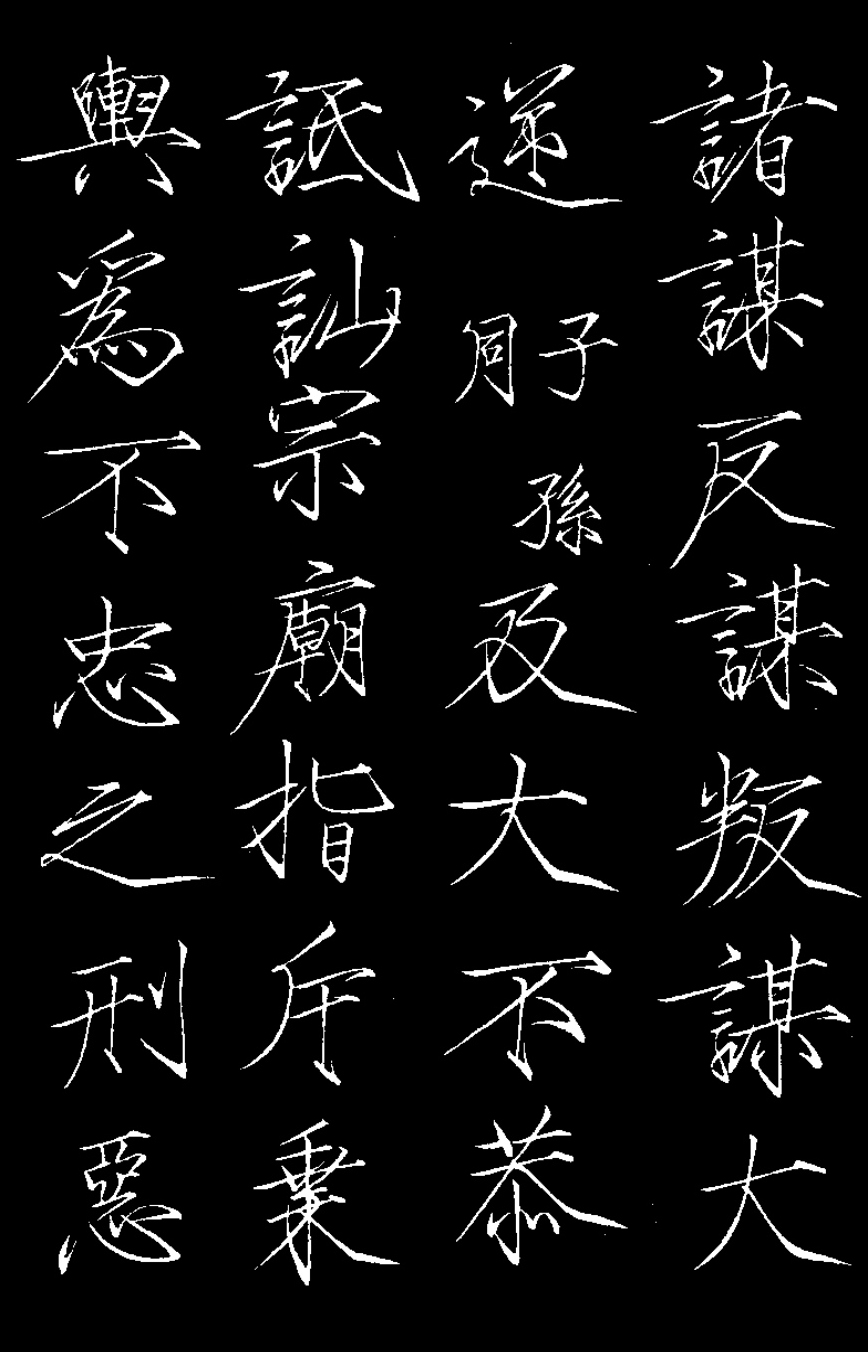 諸謀反謀叛謀大
逆子孫同及大不恭
詆訕宗廟指斥乗
輿為不忠之刑惡